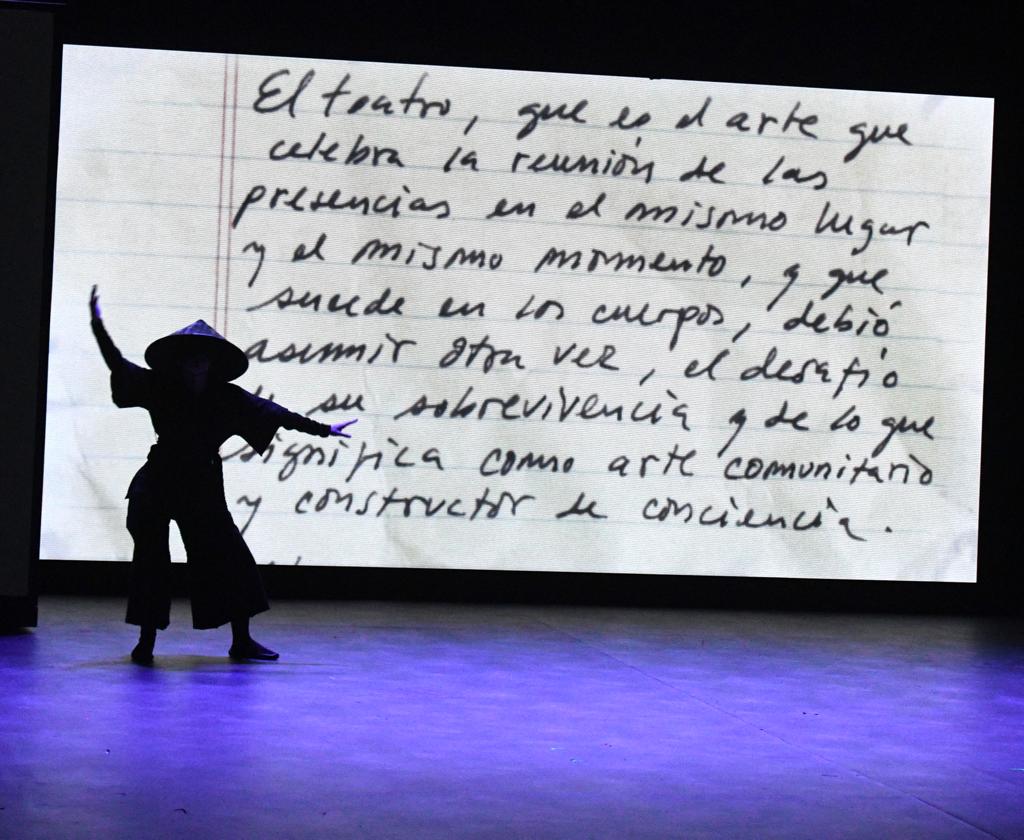 El teatro, que es el arte que
celebra la reunión de las
presencias en el mismo lugar
y el mismo momento, y que
sucede en los cuerpos, debió
asumir otra vez, el desafío
su sobrevivencia y de lo que
significa como arte comunitario
y constructor de conciencia.